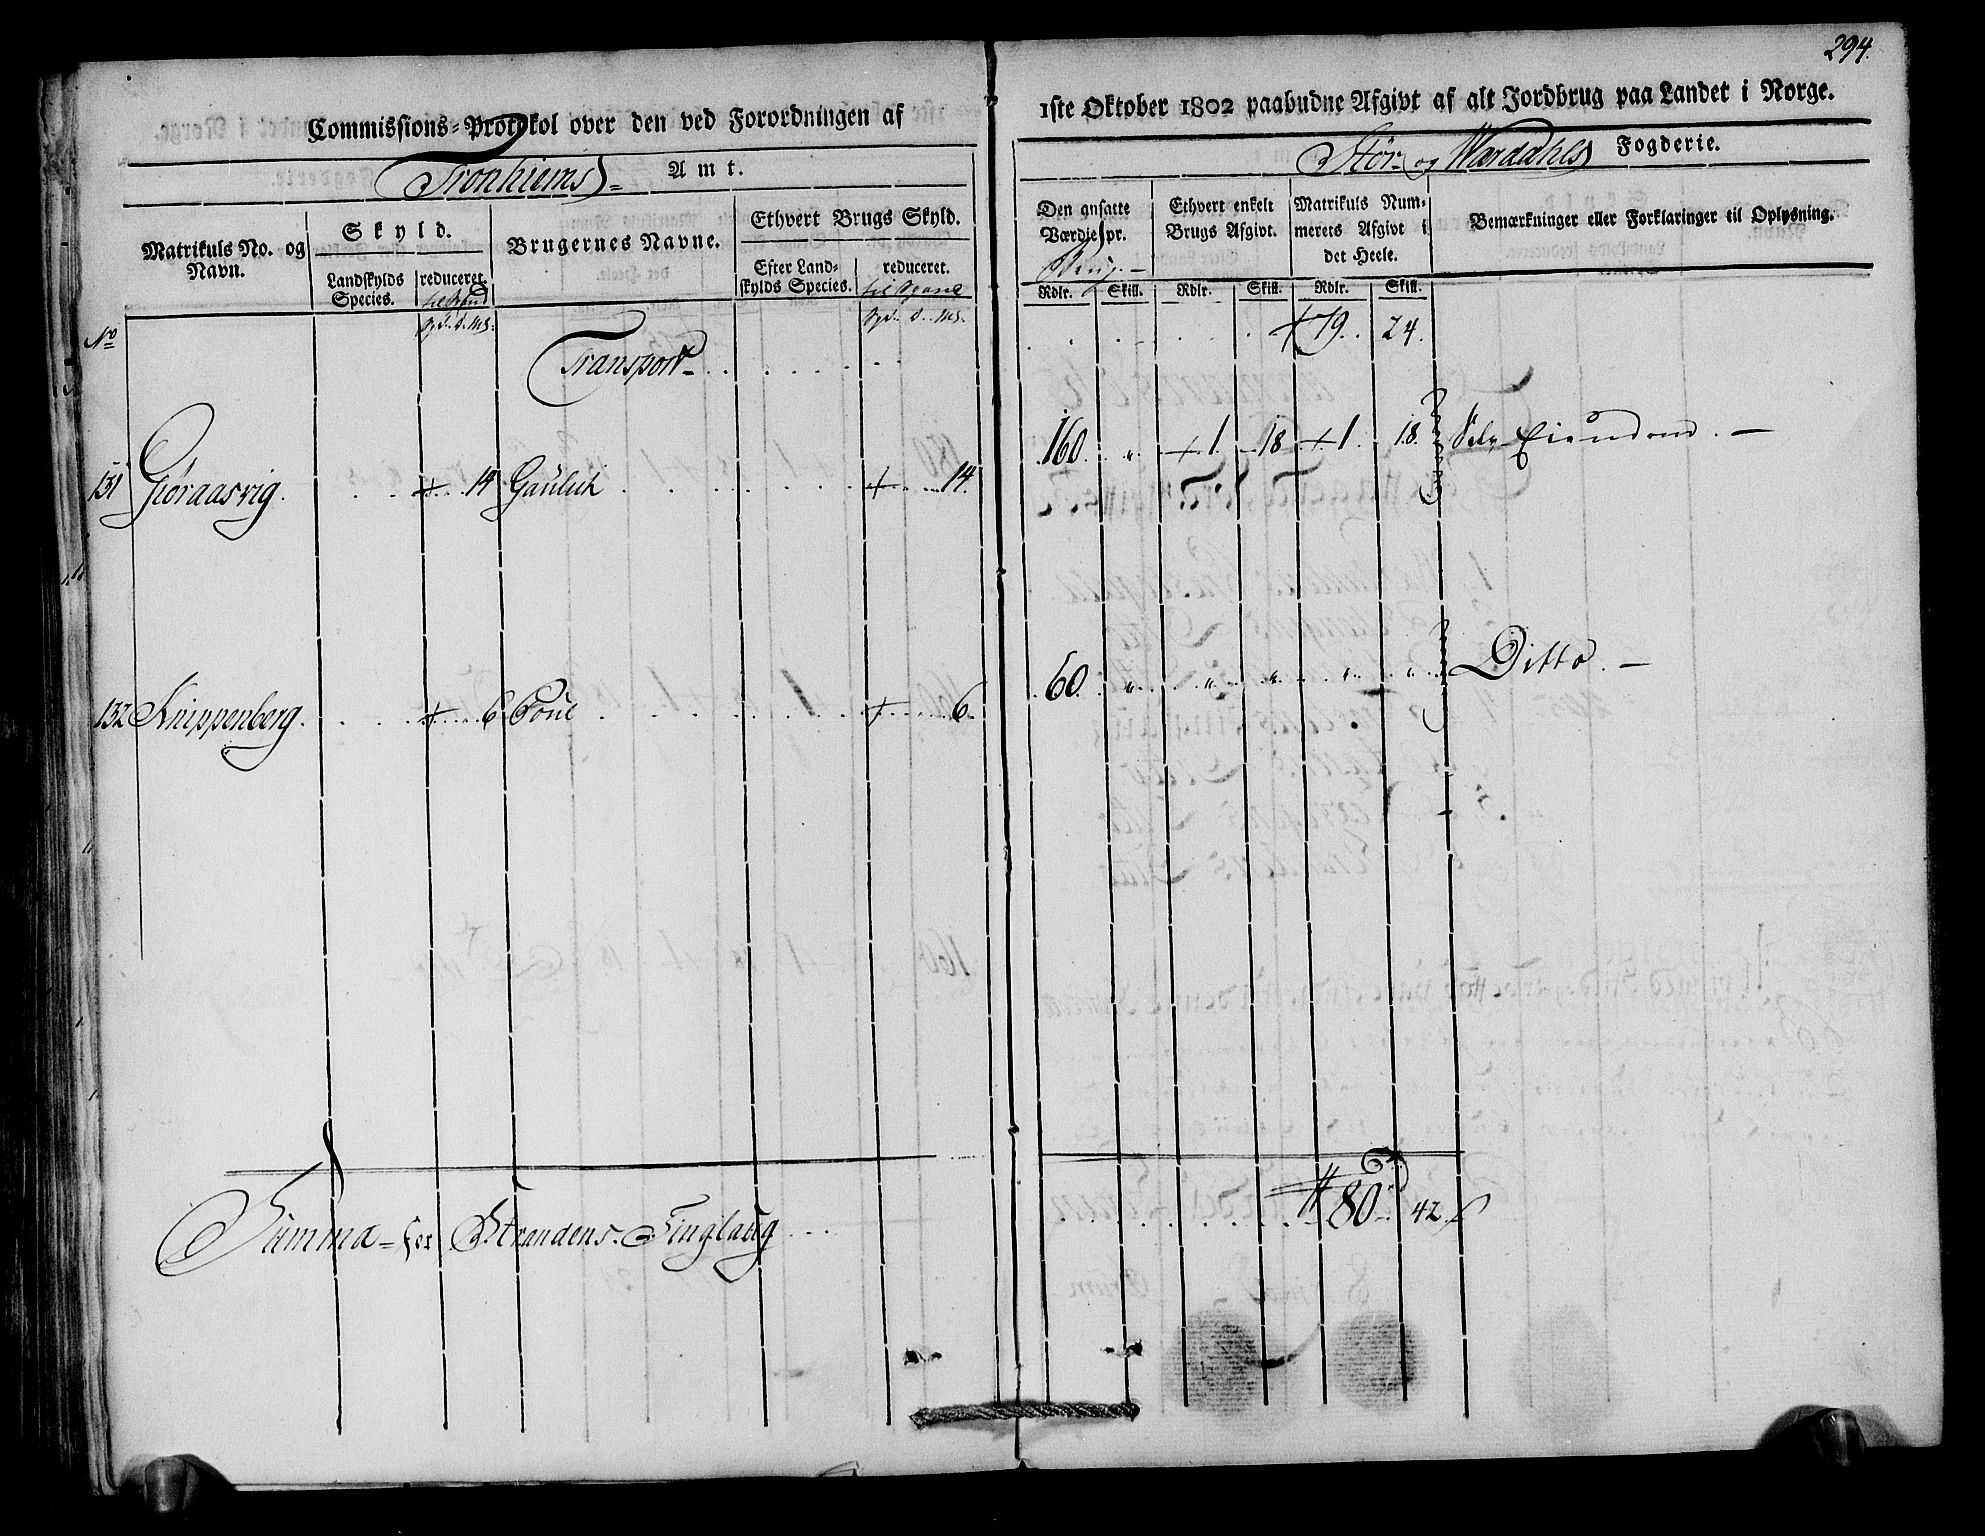 294.
Commissions=Protokol over den ved Forordningen af 1ste Oktober 1802 paabudne Afgivt af alt Jordbrug paa Landet i Norge.
Tronhiems Amt. Stør- og Værdahls Fogderie.
Matrikuls No. og Navn. Skyld. Brugernes Navne. Ethvert Brugs Skyld. Den ansatte Værdie pr. Ethvert enkelt Brugs Afgivt. Matrikuls Nummerets Afgivt i det Heele. Bemærkninger eller Forklaringer til Oplysning.
Landskylds Species. reduceret. Efter Landskylds Species. reduceret.
Rdlr. Skill. Rdlr. Skill. Rdlr. Skill.
No
Transport 79. 24.
131 Gjøraasvig. 14 14. 160 " 1 18 1. 18. Selv Eiendom. —
132 Knippenberg. 6 6. 60. " " " " " Ditto. —
Summa for Strandens Tinglaug 80 42 ß